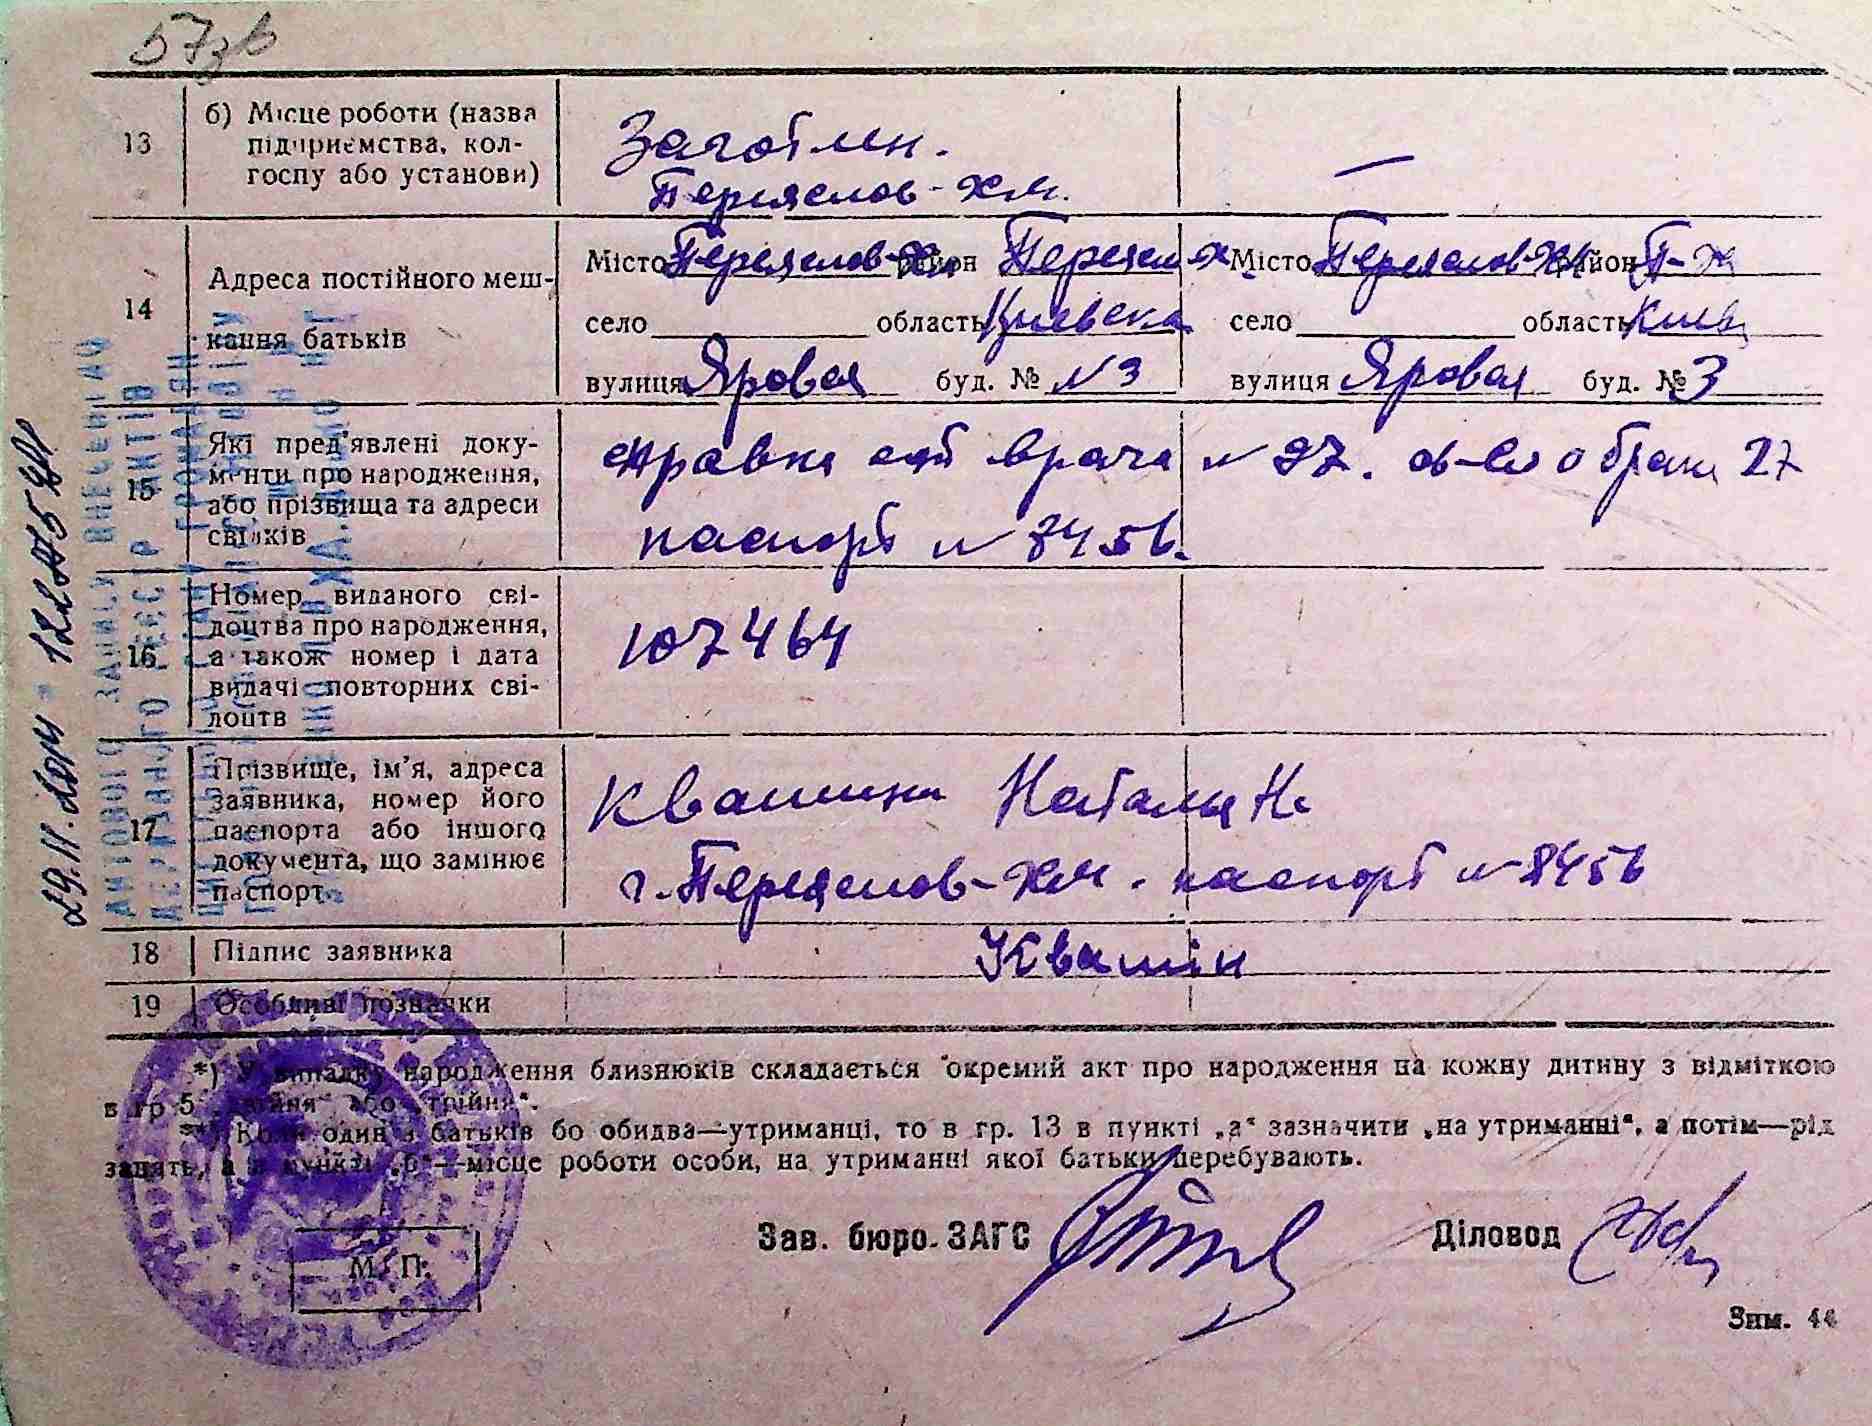 57зв
13
б) Місце роботи (назва
підприємства, кол-
госпу або установи)
Заготлен.
Переяслов-Хм.
—
14
Адреса постійного меш-
кання батьків
Місто Переяслов-Хм район Переясл-Х.
село область Киевска
вулиця Яровая буд. № N 3
Місто Переяслов-Хм район П-Х
село область Киев
вулиця Яровая буд. № 3
15
Які пред'явлені доку-
менти про народження,
або прізвища та адреси
свідків
справка от врача N 97. св-во о браке 27
паспорт N 8456.
16
Номер виданого сві-
доцтва про народження,
а також номер і дата
видачі повторних сві-
доцтв
107464
17
Прізвище, ім'я, адреса
заявника, номер його
паспорта або іншого
документа, що замінює
паспорт.
Квашина Наталия
г. Переяслов-Хм. паспорт N 8456
18
Підпис заявника
Квашін
19
Особливі познапки
*) У випадку народження близнюків складається окремий акт про народження на кожну дитину з відміткою
в гр 5 „двійня“ або „трійня“.
**) Коли один з батьків бо обидва—утриманці, то в гр. 13 в пункті „а“ зазначити „на утриманні“, а потім—рід
занять, а в пункті „б“—місце роботи особи, на утриманні якої батьки перебувають.
М. П.
Зав. бюро ЗАГС
Діловод
Зим. 44